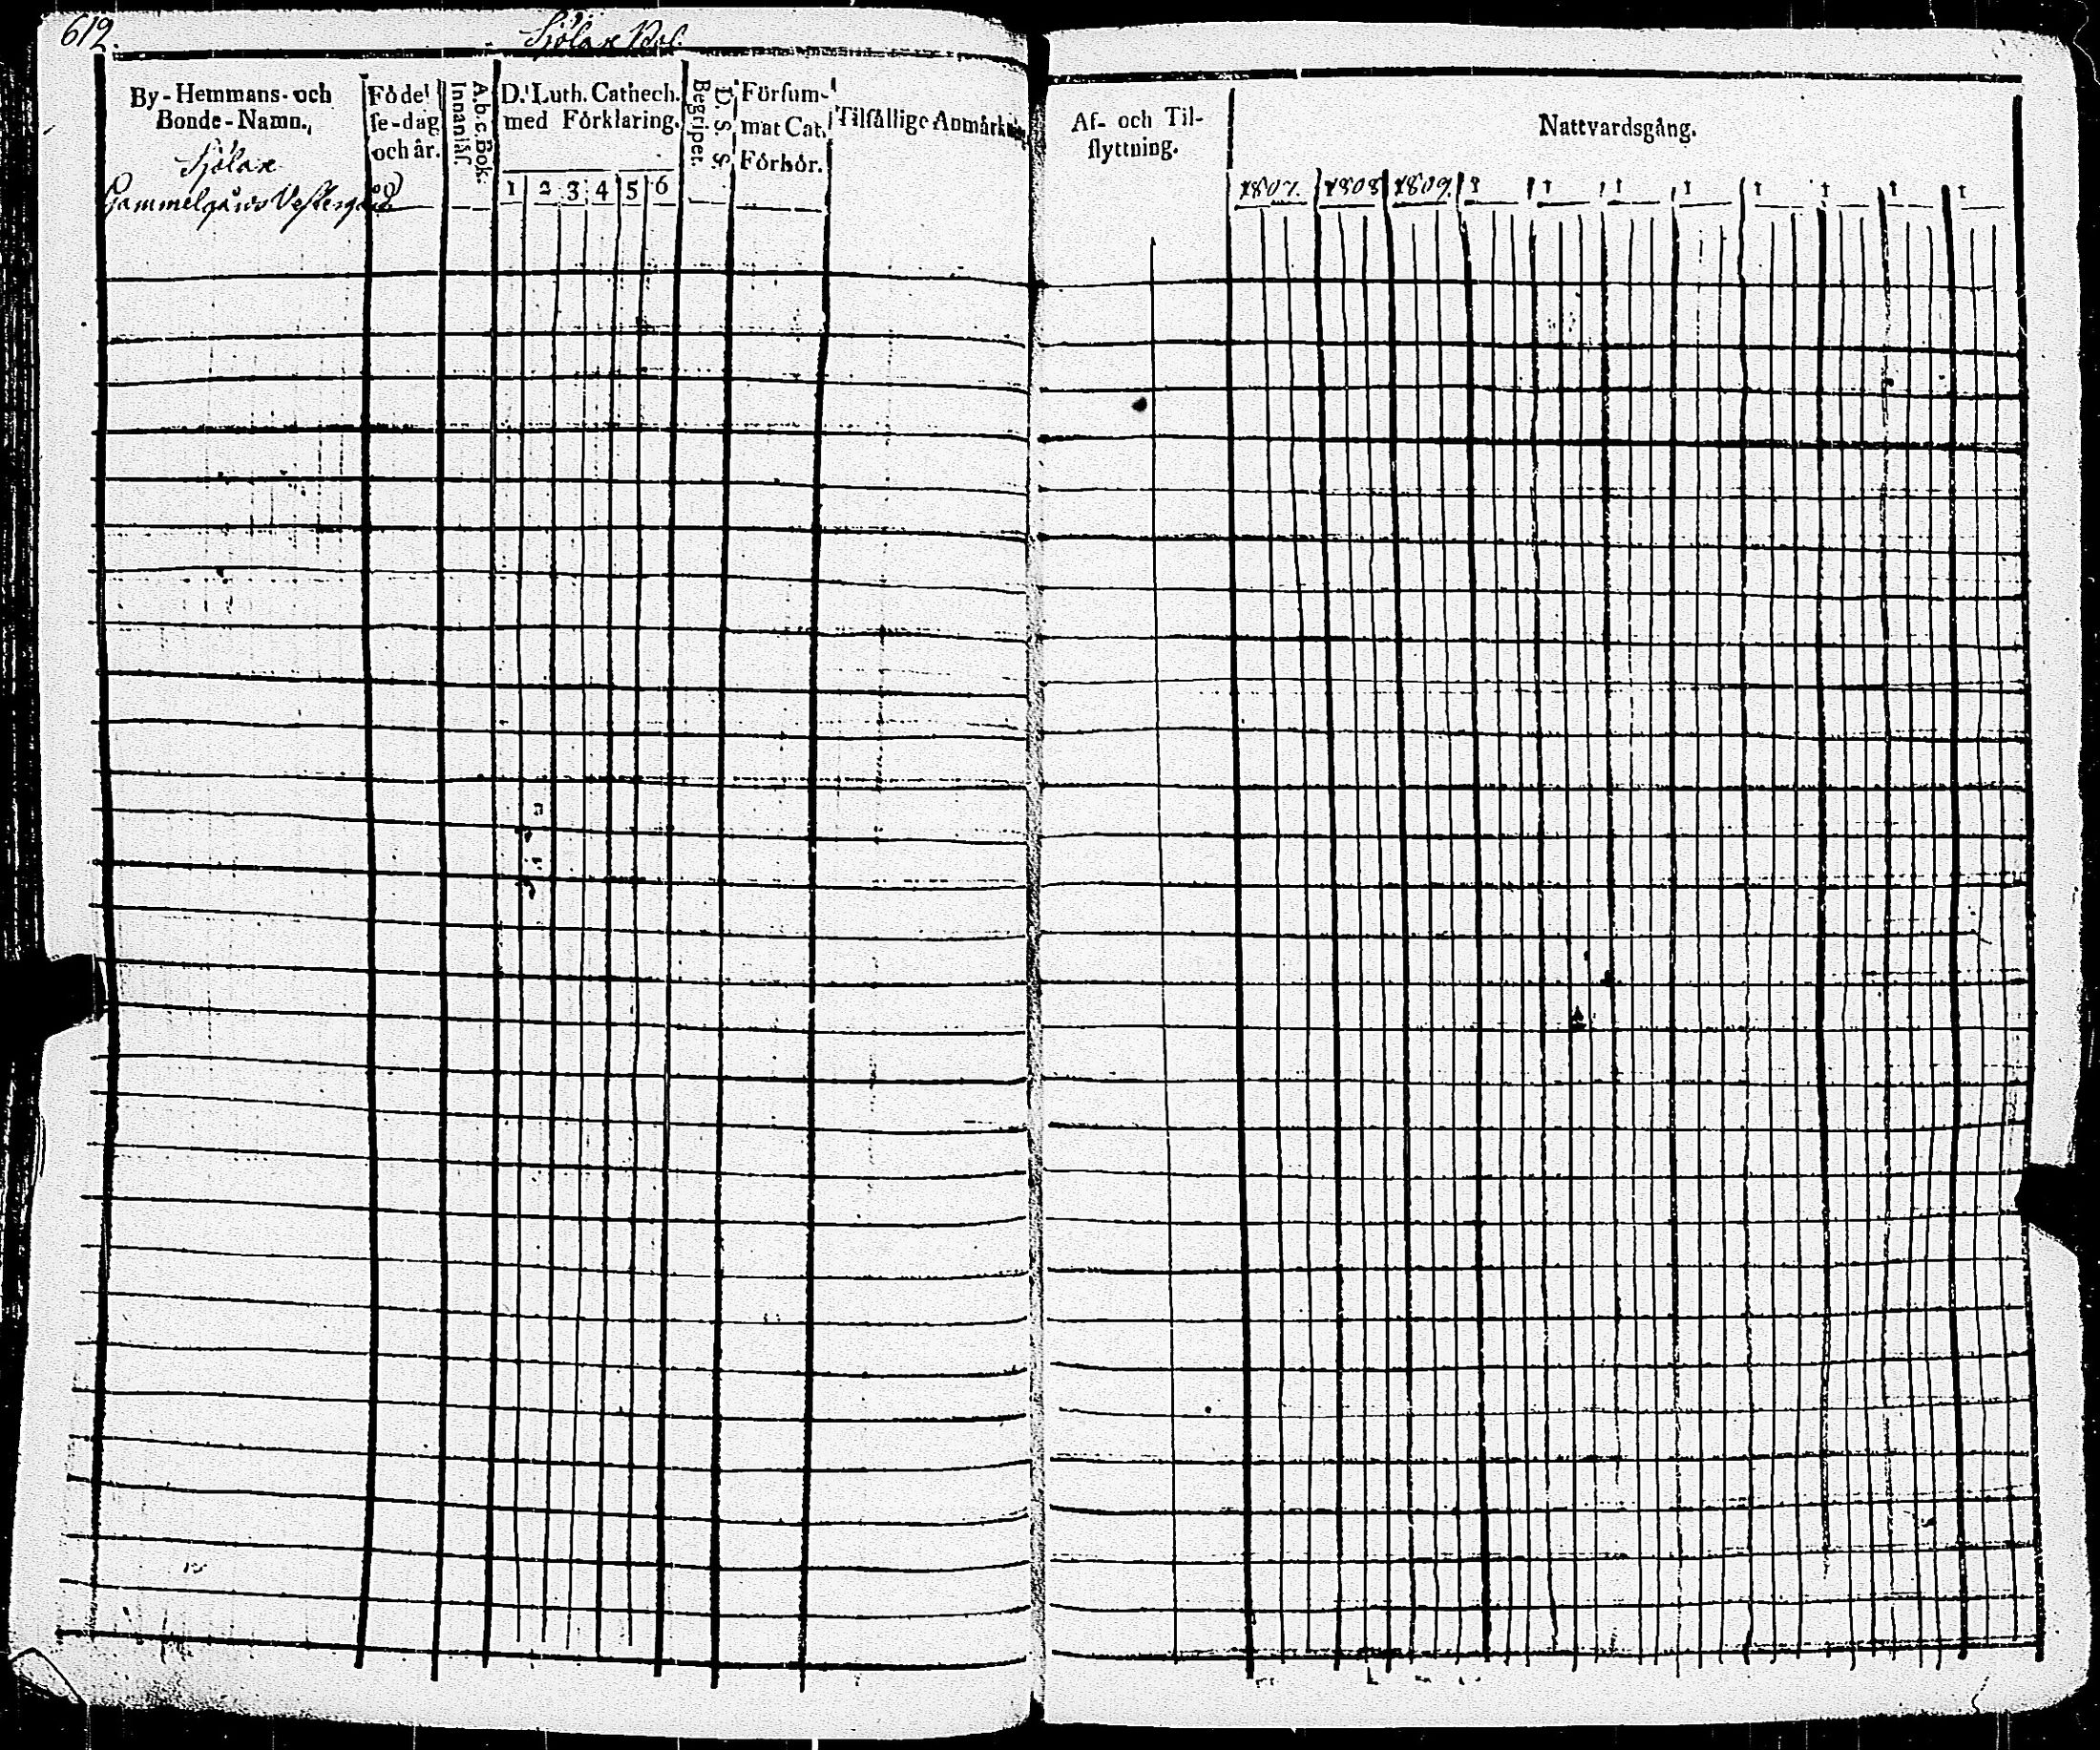 612.
Sjölax Bol.
By-Hemmans-och
Bonde-Namn.
Sjölax
Gammelgårds Vestergård
Födel
se-dag
och år.
A.b.c. Bok.
Innanläs.
D. Luth. Cathech.
med Förklaring.
1 2 3 4 5 6
D. S. S.
Begripet.
Försum-
mat Cat.
Förhör.
Tilfällige Anmärkn
Af- och Til-
flyttning.
Nattvardsgång.
1807. 1808 1809. 1 1 1 1 1 1 1 1